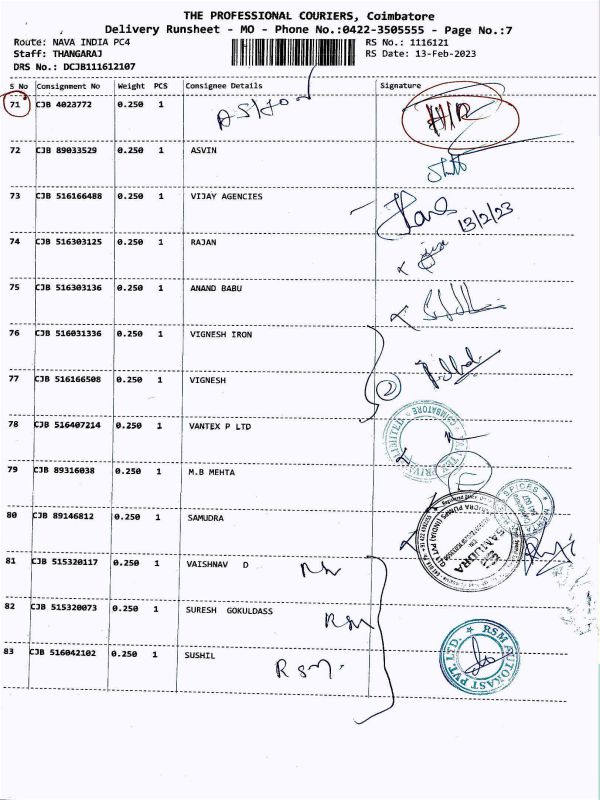 THE PROFESSIONAL COURIERS, Coimbatore
Delivery Runsheet - MO - Phone No.:0422-3505555 - Page No.:7
Route: NAVA INDIA PC4 RS No.: 1116121
Staff: THANGARAJ RS Date: 13-Feb-2023
DRS No.: DCJB111612107
S No Consignment No Weight PCS Consignee Details Signature
71 CJB 4023772 0.250 1
72 CJB 89033529 0.250 1 ASVIN
73 CJB 516166488 0.250 1 VIJAY AGENCIES
13/2/23
74 CJB 516303125 0.250 1 RAJAN
75 CJB 516303136 0.250 1 ANAND BABU
76 CJB 516031336 0.250 1 VIGNESH IRON
77 CJB 516166508 0.250 1 VIGNESH 2
78 CJB 516407214 0.250 1 VANTEX P LTD
COIMBATORE
79 CJB 89316038 0.250 1 M.B MEHTA
SPICES
80 CJB 89146812 0.250 1 SAMUDRA
SAMUDRA
81 CJB 515320117 0.250 1 VAISHNAV D
82 CJB 515320073 0.250 1 SURESH GOKULDASS RSM
83 CJB 516042102 0.250 1 SUSHIL RSM
RSM AUTOKAST PVT. LTD.